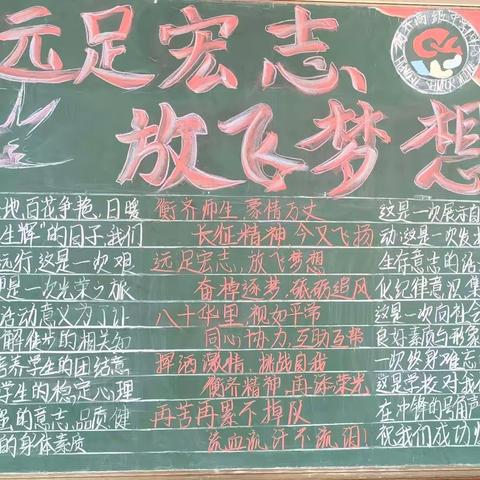 远足宏志、
放飞梦想
地,百花争艳,日暖
生辉"的日子,我们
远行,这是一次艰
更是一次光荣之旅
活动意义为了让
解徒步的相关知
培养学生的团结意
学生的稳定心理
强的意志品质,健
的身体素质
衡齐师生,豪情万丈
长征精神,今又飞扬
远足宏志,放飞梦想
奋楫逐梦,砥砺追风
八十华里,视如平常
同心协力,互助互帮
挥洒激情,挑战自我
衡齐精神,再添荣光
再苦再累不掉队
流血流汗不流泪!
这是一次展示自
动,这是一次发
生存意志的活
化纪律意识,集
这是一次向社会
良好素质与形象
一次终身难忘
这是学校对我
在冲锋的号角声
祝我们成功